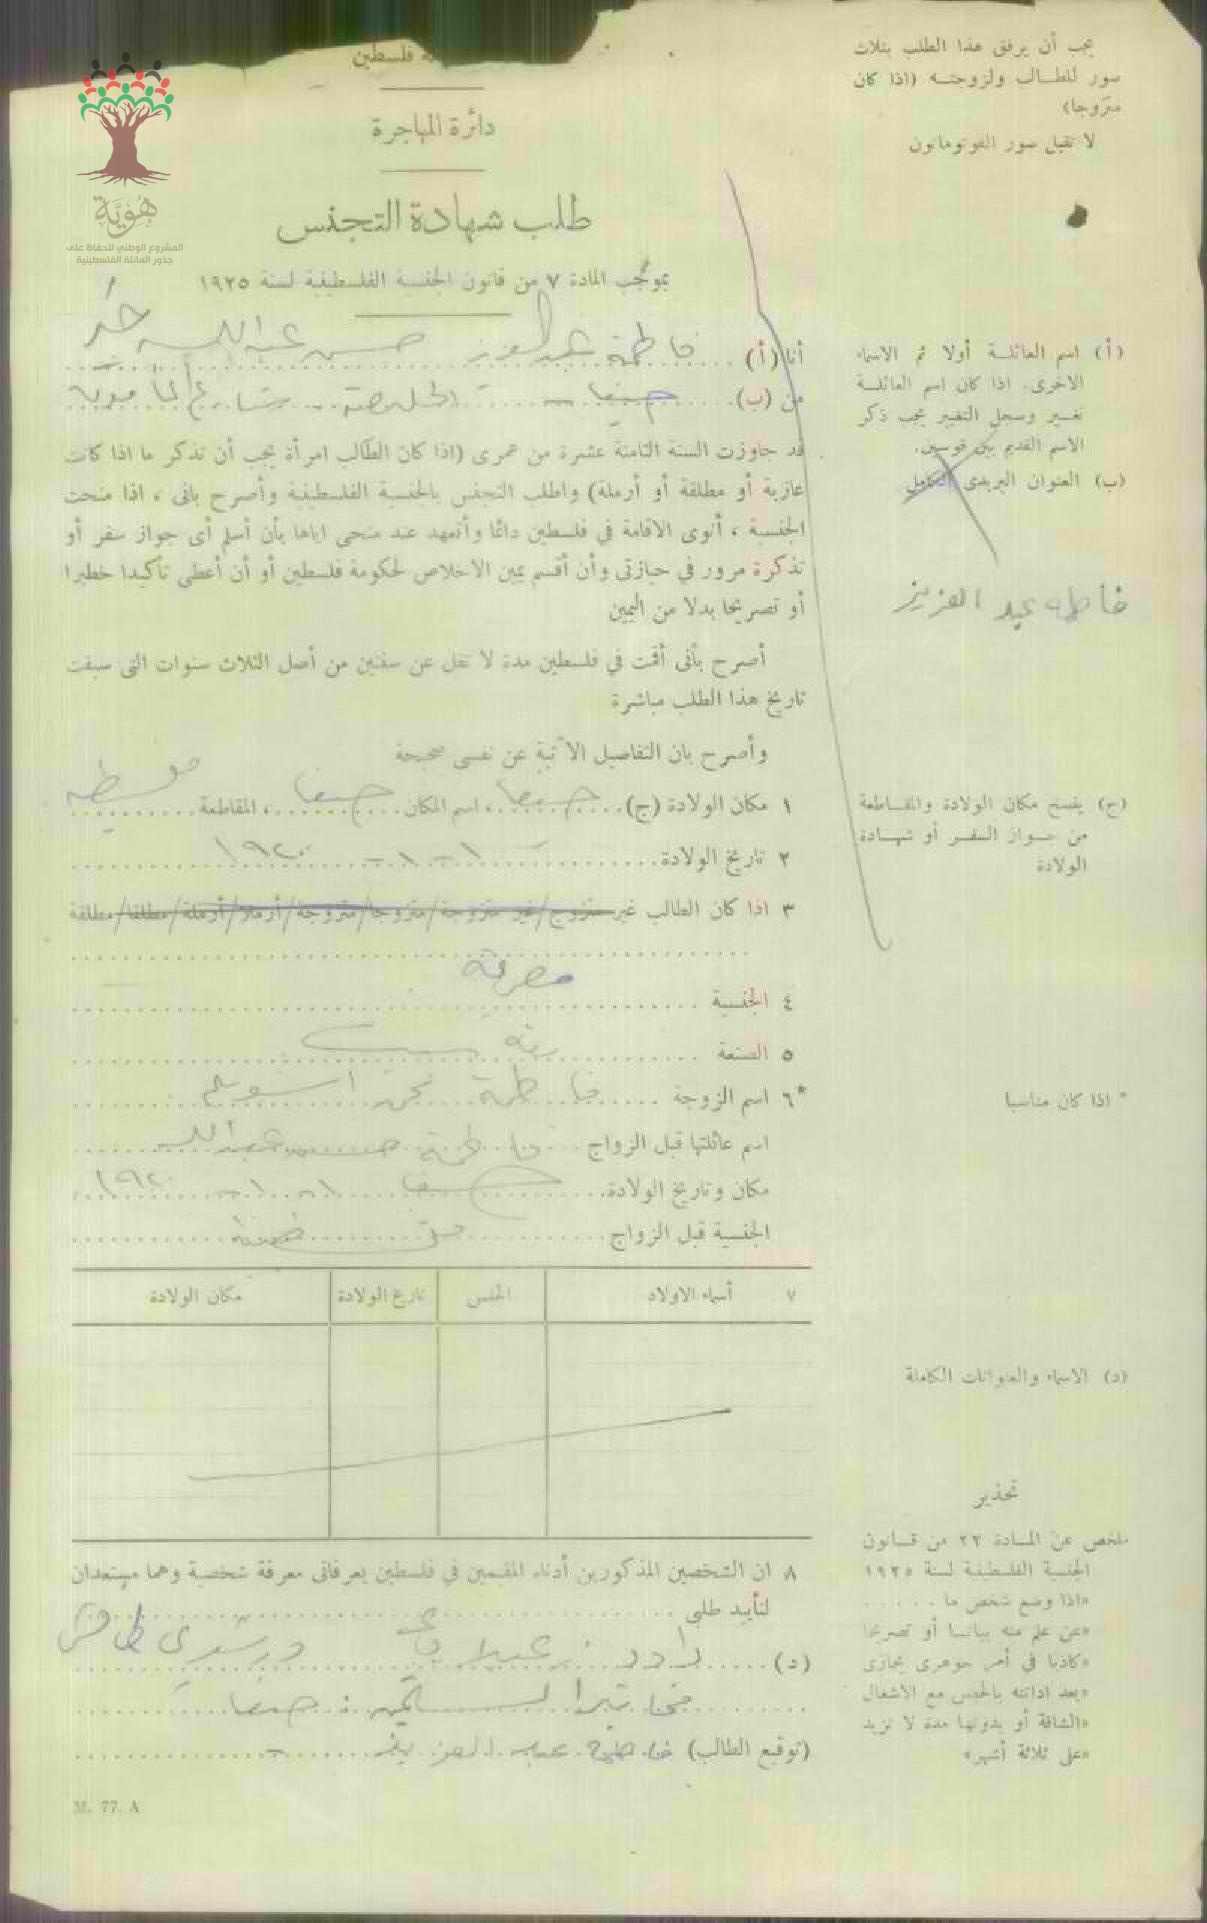 حكومة فلسطين
دائرة المهاجرة
طلب شهادة التجنس
بموجب المادة ٧ من قانون الجنسية الفلسطينية لسنة ١٩٢٥
هُوِيَّة
المشروع الوطني للحفاظ على
جذور العائلة الفلسطينية
يجب أن يرفق هذا الطلب بثلاث
صور للطالب ولزوجته (اذا كان
متزوجا)
لا تقبل صور الفوتوماتون
أنا (أ) فاطمة عبد العزيز حسن عبد الله
من (ب) حيفا - الحليصة - شارع
قد جاوزت السنة الثامنة عشرة من عمرى (اذا كان الطالب امرأة يجب أن تذكر ما اذا كانت
عازبة أو مطلقة أو أرملة) واطلب التجنس بالجنسية الفلسطينية وأصرح بانى ، اذا منحت
الجنسية ، أنوى الاقامة في فلسطين دائما وأتعهد عند منحى اياها بأن أسلم أى جواز سفر أو
تذكرة مرور في حيازتى وأن أقسم يمين الاخلاص لحكومة فلسطين أو أن أعطى تأكيدا خطيرا
أو تصريحا بدلا من اليمين
أصرح بأنى أقمت في فلسطين مدة لا تقل عن سنتين من أصل الثلاث سنوات التى سبقت
تاريخ هذا الطلب مباشرة
وأصرح بان التفاصيل الآتية عن نفسى صحيحة
١ مكان الولادة (ج) حيفا ، اسم المكان حيفا ، المقاطعة
٢ تاريخ الولادة ١-١-١٩٢٠
٣ اذا كان الطالب غير متزوج/غير متزوجة/متزوجا/متزوجة/أرملا/أرملة/مطلقا/مطلقة
٤ الجنسية مصرية
٥ الصنعة ربة بيت
*٦ اسم الزوجة فاطمة
اسم عائلتها قبل الزواج فاطمة حسن عبد الله
مكان وتاريخ الولادة حيفا ١-١-١٩٢٠
الجنسية قبل الزواج
٧ أسماء الاولاد الجنس تاريخ الولادة مكان الولادة
٨ ان الشخصين المذكورين أدناه المقيمين في فلسطين يعرفانى معرفة شخصية وهما مستعدان
لتأييد طلبى
(د)
حيفا
(توقيع الطالب) فاطمة عبد العزيز
M. 77. A
(أ) اسم العائلة أولا ثم الاسماء
الاخرى. اذا كان اسم العائلة
تغير وسجل التغيير يجب ذكر
الاسم القديم بين قوسين.
(ب) العنوان البريدى الكامل
فاطمه عبد العزيز
(ج) ينسخ مكان الولادة والمقاطعة
من جواز السفر أو شهادة
الولادة
* اذا كان مناسبا
(د) الاسماء والعنوانات الكاملة
تحذير
ملخص عن المادة ٢٢ من قانون
الجنسية الفلسطينية لسنة ١٩٢٥
«اذا وضع شخص ما . . . . . .
«عن علم منه بيانا أو تصريحا
«كاذبا في أمر جوهرى يجازى
«بعد ادانته بالحبس مع الاشغال
«الشاقة أو بدونها مدة لا تزيد
«على ثلاثة أشهر»